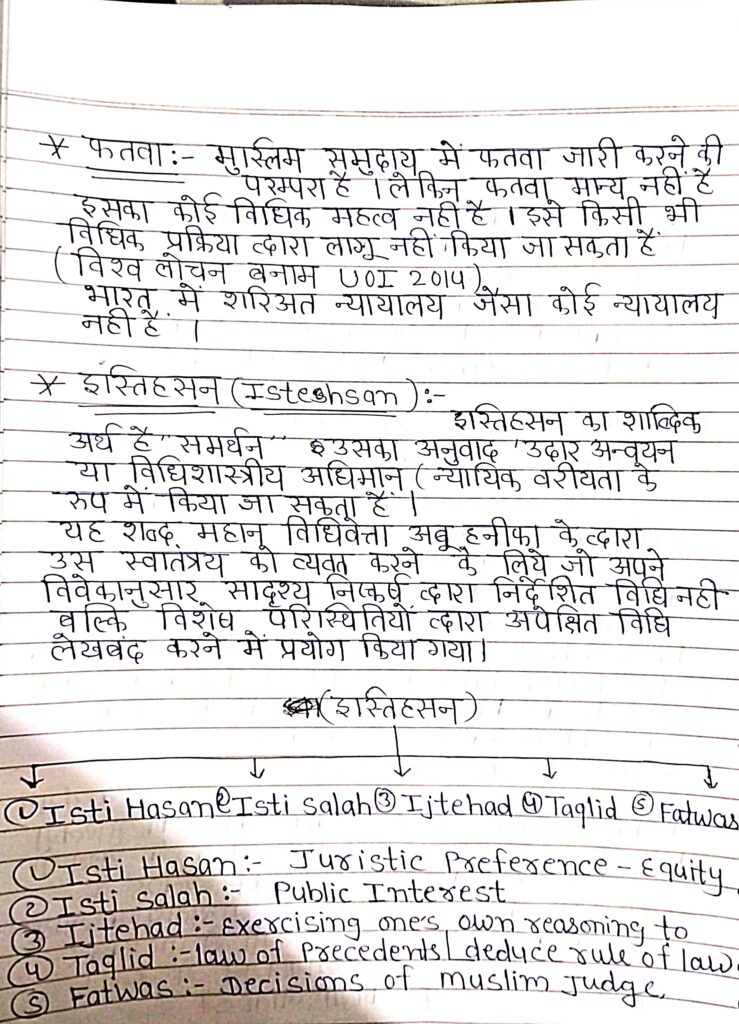 * फतवा:- मुस्लिम समुदाय में फतवा जारी करने की
परम्परा है । लेकिन फतवा मान्य नहीं है
इसका कोई विधिक महत्व नहीं है । इसे किसी भी
विधिक प्रक्रिया द्वारा लागू नहीं किया जा सकता है
(विश्व लोचन बनाम UOI 2014)
भारत में शरिअत न्यायालय जैसा कोई न्यायालय
नहीं है ।
* इस्तिहसन (Istehsan):-
इस्तिहसन का शाब्दिक
अर्थ है "समर्थन" उसका अनुवाद 'उदार अन्वयन
या विधिशास्त्रीय अधिमान (न्यायिक वरीयता के
रुप में किया जा सकता है ।
यह शब्द महान विधिवेत्ता अबू हनीफा के द्वारा
उस स्वातंत्रय को व्यक्त करने के लिये जो अपने
विवेकानुसार सादृश्य निष्कर्ष द्वारा निर्देशित विधि नही
बल्कि विशेष परिस्थितियों द्वारा अपेक्षित विधि
लेखबंद करने में प्रयोग किया गया।
(इस्तिहसन)
① Isti Hasan ② Isti Salah ③ Ijtehad ④ Taqlid ⑤ Fatwas
① Isti Hasan:- Juristic Preference - Equity
② Isti Salah:- Public Interest
③ Ijtehad:- Exercising one's own reasoning to
④ Taqlid:- law of Precedents | deduce rule of law.
⑤ Fatwas:- Decisions of muslim Judge.